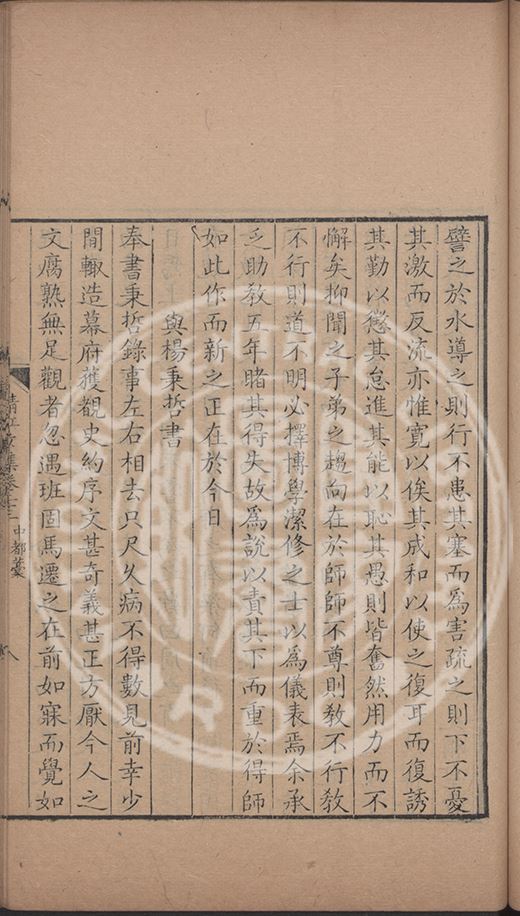 譬之於水導之則行不患其塞而爲害疏之則下不憂
其激而反流亦惟寛以俟其成和以使之復耳而復誘
其勤以懲其怠進其能以恥其愚則皆奮然用力而不
懈矣抑聞之子弟之趨向在於師師不尊則敎不行敎
不行則道不明必擇博學潔修之士以爲儀表焉余承
乏助敎五年睹其得失故爲說以責其下而重於得師
如此作而新之正在於今日
與楊秉哲書
奉書秉哲錄事左右相去只尺久病不得數見前幸少
間輙造幕府獲覩史約序文甚奇義甚正方厭今人之
文腐熟無足觀者忽遇班固馬遷之在前如寐而覺如
清江文集卷十三 中都藁 八